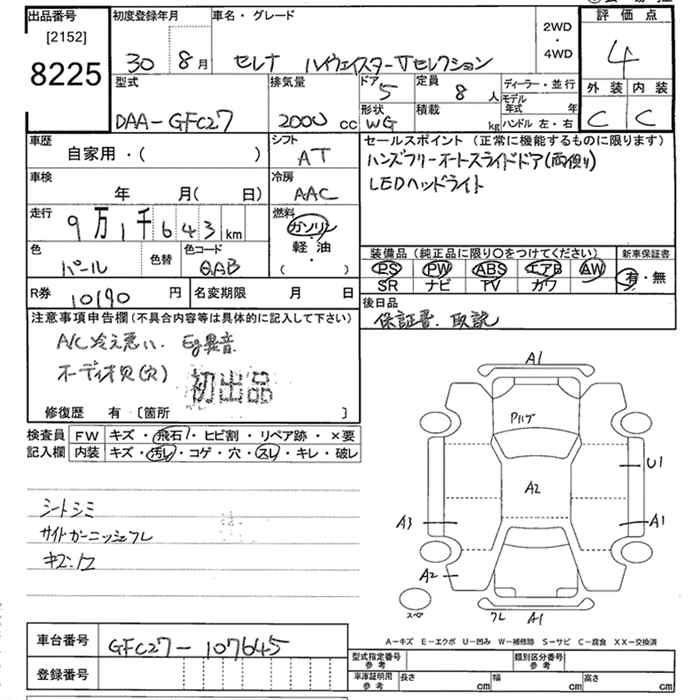 出品番号
[2152]
8225
初度登録年月
30 8月
車名・グレード
セレナ ハイウェイスターVセレクション
2WD
・
4WD
評価点
4
外装 内装
C C
型式
DAA-GFC27
排気量
2000 cc
ドア
5
定員
8 人
形状
WG
積載
kg
ディーラー・並行
モデル年式 年
ハンドル 左・右
車歴
自家用・( )
シフト
AT
セールスポイント (正常に機能するものに限ります)
ハンズフリーオートスライドドア(両側)
LEDヘッドライト
車検
年 月( 日)
冷房
AAC
走行
9万1千643km
燃料
ガソリン
軽・油
( )
色
パール
色替
色コード
QAB
装備品 (純正品に限り○をつけてください)
PS PW ABS エアB AW
SR ナビ TV カワ
新車保証書
有・無
R券
10190 円
名変期限 月 日
後日品
保証書、取説
注意事項申告欄 (不具合内容等は具体的に記入して下さい)
A/C冷え悪い、Eg異音
オーディオ欠(穴)
初出品
修復歴 有 [箇所 ]
検査員
記入欄
FW キズ・飛石・ヒビ割・リペア跡・×要
内装 キズ・汚れ・コゲ・穴・スレ・キレ・破レ
シートシミ
サイドガーニッシュワレ
A1
Pハゲ
U1
A2
A3
A1
A2
スペア
ワレ A1
A-キズ E-エクボ U-凹み W-補修跡 S-サビ C-腐食 XX-交換済
車台番号
GFC27-107645
登録番号
型式指定番号
参考
類別区分番号
参考
車庫証明用
参考
長さ cm
幅 cm
高さ cm